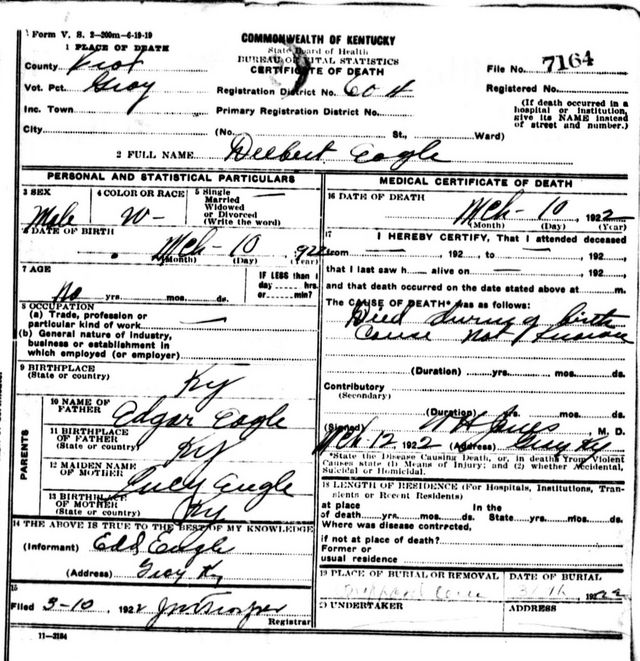 Form V. S. 2-200m-6-19-19
COMMONWEALTH OF KENTUCKY
State Board of Health
BUREAU OF VITAL STATISTICS
CERTIFICATE OF DEATH
1 PLACE OF DEATH
County
Vot. Pct. Gray
Inc. Town
City
Registration District No. 60
Primary Registration District No.
(No. St., Ward)
File No. 7164
Registered No.
(If death occurred in a
hospital or institution,
give its NAME instead
of street and number.)
2 FULL NAME Delbert Cogle
PERSONAL AND STATISTICAL PARTICULARS
3 SEX
Male
4 COLOR OR RACE
W-
5 Single
Married
Widowed
or Divorced
(Write the word)
6 DATE OF BIRTH
Mch-10 922
(Month) (Day) (Year)
7 AGE
no yrs. mos. ds.
IF LESS than 1
day hrs.
or min?
8 OCCUPATION
(a) Trade, profession or
particular kind of work
(b) General nature of industry,
business or establishment in
which employed (or employer)
9 BIRTHPLACE
(State or country)
Ky
PARENTS
10 NAME OF
FATHER
Edgar Cogle
11 BIRTHPLACE
OF FATHER
(State or country)
Ky
12 MAIDEN NAME
OF MOTHER
Lucy Engle
13 BIRTHPLACE
OF MOTHER
(State or country)
Ky
14 THE ABOVE IS TRUE TO THE BEST OF MY KNOWLEDGE
(Informant) Edd Engle
(Address) Gray Ky
15
Filed 3-10, 1922
Registrar
11-3184
MEDICAL CERTIFICATE OF DEATH
16 DATE OF DEATH
Mch-10, 1922
(Month) (Day) (Year)
17 I HEREBY CERTIFY, That I attended deceased
from , 192 , to , 192
that I last saw h alive on , 192
and that death occurred on the date stated above at m.
The CAUSE OF DEATH* was as follows:
Died during birth
Cause not known
(Duration) yrs. mos. ds.
Contributory
(Secondary)
(Duration) yrs. mos. ds.
(Signed) , M. D.
Mch 12, 1922 (Address) Gray Ky
*State the Disease Causing Death, or, in deaths from Violent
Causes state (1) Means of Injury; and (2) whether Accidental,
Suicidal or Homicidal.
18 LENGTH OF RESIDENCE (For Hospitals, Institutions, Tran-
sients or Recent Residents)
At place of death yrs. mos. ds. In the State yrs. mos. ds.
Where was disease contracted,
if not at place of death?
Former or
usual residence
19 PLACE OF BURIAL OR REMOVAL
DATE OF BURIAL
1922
20 UNDERTAKER
ADDRESS